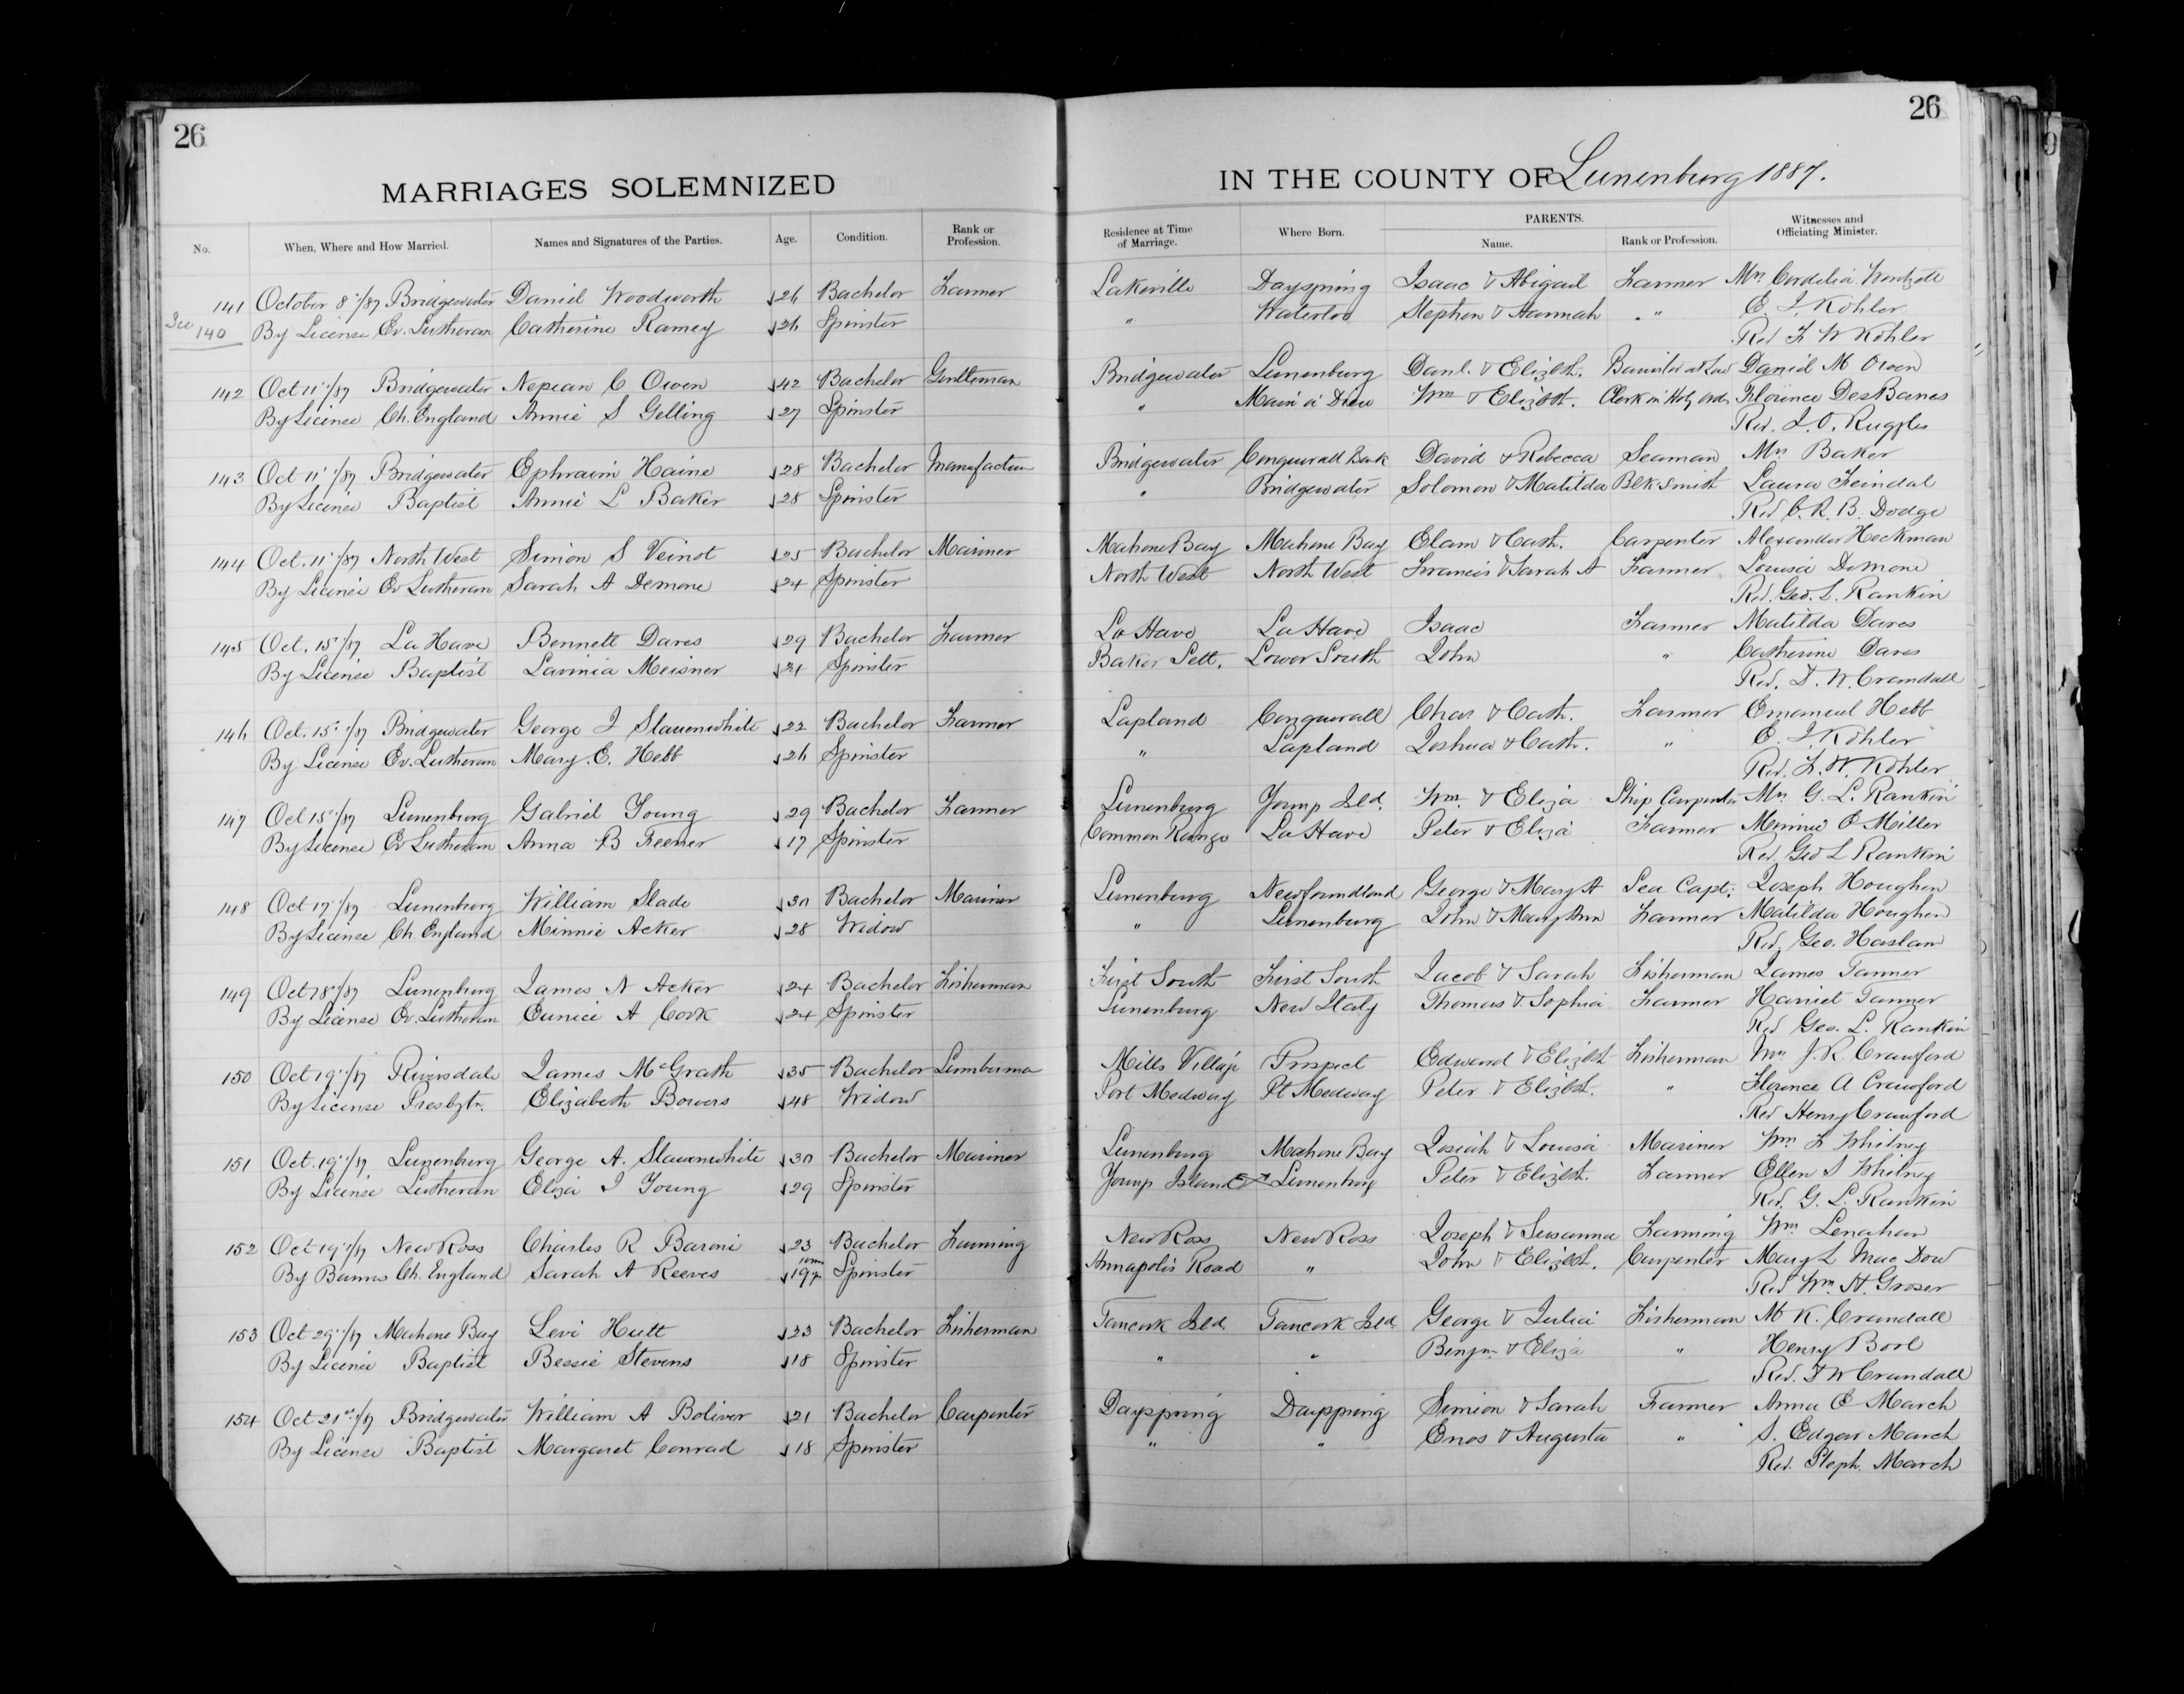 26
26
MARRIAGES SOLEMNIZED IN THE COUNTY OF Lunenburg 1887.
No. When, Where and How Married. Names and Signatures of the Parties. Age. Condition. Rank or Profession. Residence at Time of Marriage. Where Born. PARENTS. Name. Rank or Profession. Witnesses and Officiating Minister.
141 October 8"/87 Bridgewater Daniel Woodworth 26 Bachelor Farmer Lakeville Dayspring Isaac & Abigail Farmer Mrs Cordelia
See 140 By License Ev. Lutheran Catherine Ramey 26 Spinster " Waterloo Stephen & Hannah " E. J. Köhler
Rev F W Köhler
142 Oct 11"/87 Bridgewater Nepean C Owen 42 Bachelor Gentleman Bridgewater Lunenburg Danl. & Elizbth. Barrister at Law Daniel M Owen
By License Ch. England Annie S Gelling 27 Spinster " Wm & Elizbth. Clerk in Holy Ords. Florence DesBarres
Rev. J. O. Ruggles
143 Oct 11"/87 Bridgewater Ephraim Haine 28 Bachelor Manufacturer Bridgewater Conquerall Bank David & Rebecca Seaman Mrs Baker
By License Baptist Annie L Baker 28 Spinster " Bridgewater Solomon & Matilda Blksmith Laura Feindal
Rev C. R. B. Dodge
144 Oct. 11"/87 North West Simion S Veinot 25 Bachelor Mariner Mahone Bay Mahone Bay Elam & Cath. Carpenter Alexander Heckman
By License Ev Lutheran Sarah A Demone 24 Spinster North West North West Francis & Sarah A Farmer Louisa Demone
Rev. Geo. L. Rankin
145 Oct. 15"/87 La Have Bennett Dares 29 Bachelor Farmer La Have La Have Isaac Farmer Matilda Dares
By License Baptist Lavinia Meisner 21 Spinster Baker Sett. Lower South John " Catherine Dares
Rev. D. W. Crandall
146 Oct. 15"/87 Bridgewater George J Slauenwhite 22 Bachelor Farmer Lapland Conquerall Chas & Cath. Farmer Emanuel Hebb
By License Ev. Lutheran Mary. E. Hebb 26 Spinster " Lapland Joshua & Cath. " E. J. Köhler
Rev. F. W. Köhler
147 Oct 15"/87 Lunenburg Gabriel Young 29 Bachelor Farmer Lunenburg Youngs Isld. Wm. & Eliza Ship Carpenter Mrs G. L. Rankin
By License Ev Lutheran Anna B Feener 17 Spinster Common Range La Have Peter & Eliza Farmer Minnie E Miller
Rev. Geo L Rankin
148 Oct 17"/87 Lunenburg William Slade 30 Bachelor Mariner Lunenburg Newfoundland George & Mary A Sea Capt. Joseph Houghen
By License Ch. England Minnie Acker 28 Widow " Lunenburg John & Mary Ann Farmer Matilda Houghen
Rev. Geo. Haslam
149 Oct 18"/87 Lunenburg James N Acker 24 Bachelor Fisherman First South First South Jacob & Sarah Fisherman James Tanner
By License Ev. Lutheran Eunice A Cook 24 Spinster Lunenburg New Italy Thomas & Sophia Farmer Harriet Tanner
Rev Geo. L. Rankin
150 Oct 19"/87 Riversdale James McGrath 35 Bachelor Lumberman Mills Village Prospect Edward & Elizbth Fisherman Mrs J. R. Crawford
By License Presbytn. Elizabeth Bowers 48 Widow Port Medway Pt Medway Peter & Elizbth. " Florence A Crawford
Rev Henry Crawford
151 Oct. 19"/87 Lunenburg George A. Slauenwhite 30 Bachelor Mariner Lunenburg Mahone Bay Josiah & Louisa Mariner Wm F Whitney
By License Lutheran Eliza J Young 29 Spinster Youngs Island Lunenburg Peter & Elizbth. Farmer Ellen S Whitney
Rev. G. L. Rankin
152 Oct 19"/87 New Ross Charles R Baroni 23 Bachelor Farming New Ross New Ross Joseph & Susanna Farming Wm Lenahan
By Banns Ch. England Sarah A Reeves 19 Spinster Annapolis Road " John & Elizbth. Carpenter Mary L Mac Dow
Rev Wm. H. Groser
153 Oct 29"/87 Mahone Bay Levi Hutt 23 Bachelor Fisherman Tancook Isld. Tancook Isld. George & Julia Fisherman M K. Crandall
By License Baptist Bessie Stevens 18 Spinster " " Benjn. & Eliza " Henry
Rev. D W Crandall
154 Oct 21st/87 Bridgewater William A Boliver 21 Bachelor Carpenter Dayspring Dayspring Simion & Sarah Farmer Anna E March
By License Baptist Margaret Conrad 18 Spinster " " Enos & Augusta " S. Edgar March
Rev. Steph. March